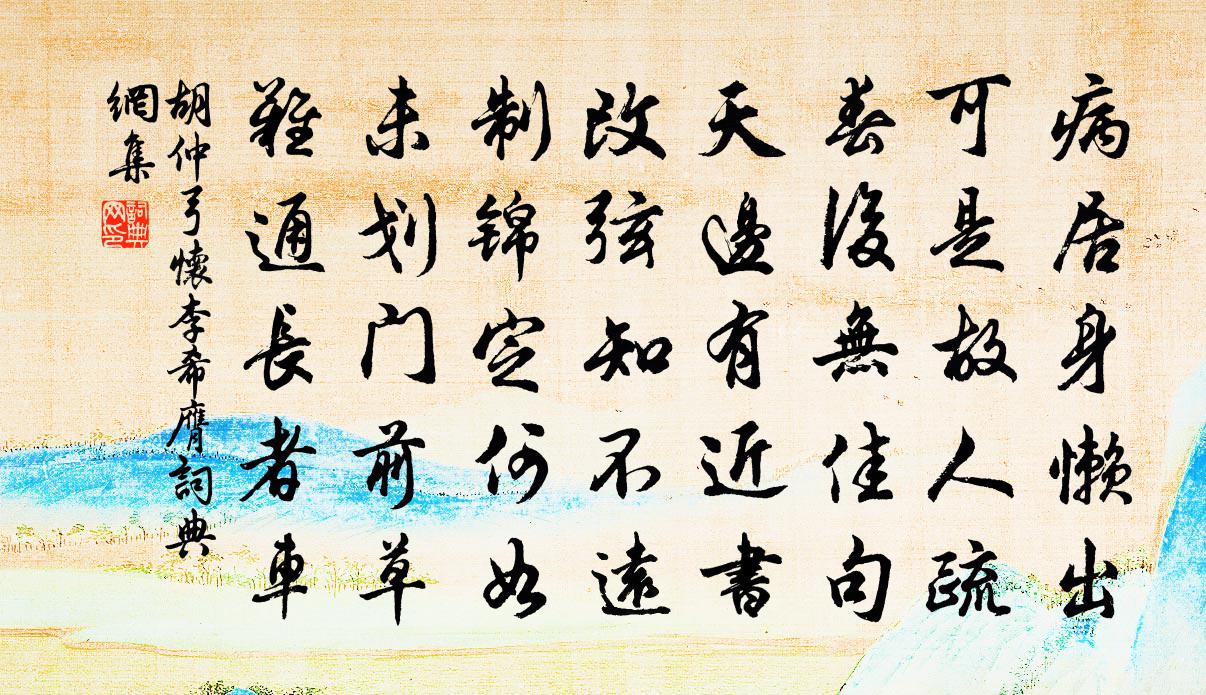 病居身懒出
可是故人疏
春後無佳句
天邊有近書
改弦知不遠
制锦定何如
未刬門前草
難通長者車
胡仲弓懷李希膺詞典
網集
詞典
网印